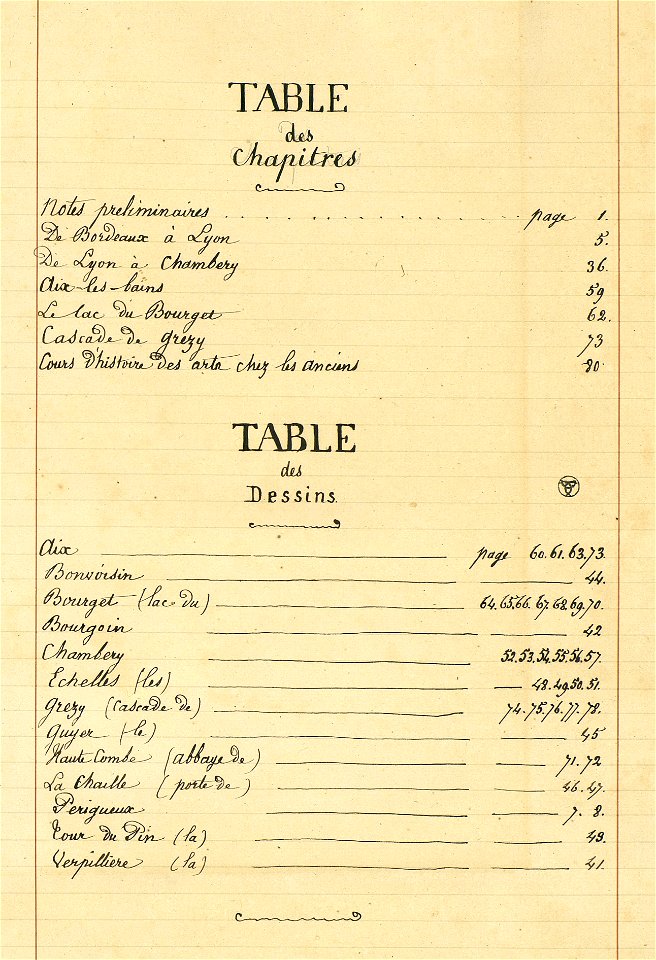 TABLE
des
Chapitres
Notes preliminaires . . . . . . . . . . . . . . . . page 1.
De Bordeaux à Lyon 5.
De Lyon à Chambery 36.
Aix-les-bains 59
Le lac du Bourget 62.
Cascade de Grezy 73
Cours d'histoire des arts chez les anciens 80
TABLE
des
Dessins
Aix page 60.61.63.73.
Bonvoisin 44.
Bourget (lac du) 64.65.66.67.68.69.70.
Bourgoin 42
Chambery 52.53.54.55.56.57.
Echelles (les) 48.49.50.51.
Grezy (cascade de) 74.75.76.77.78.
Guyer (le) 45
Haute Combe (abbaye de) 71.72
La Chaille (porte de) 46.47.
Périgueux 7.8.
Tour du Pin (la) 43.
Verpilliere (la) 41.